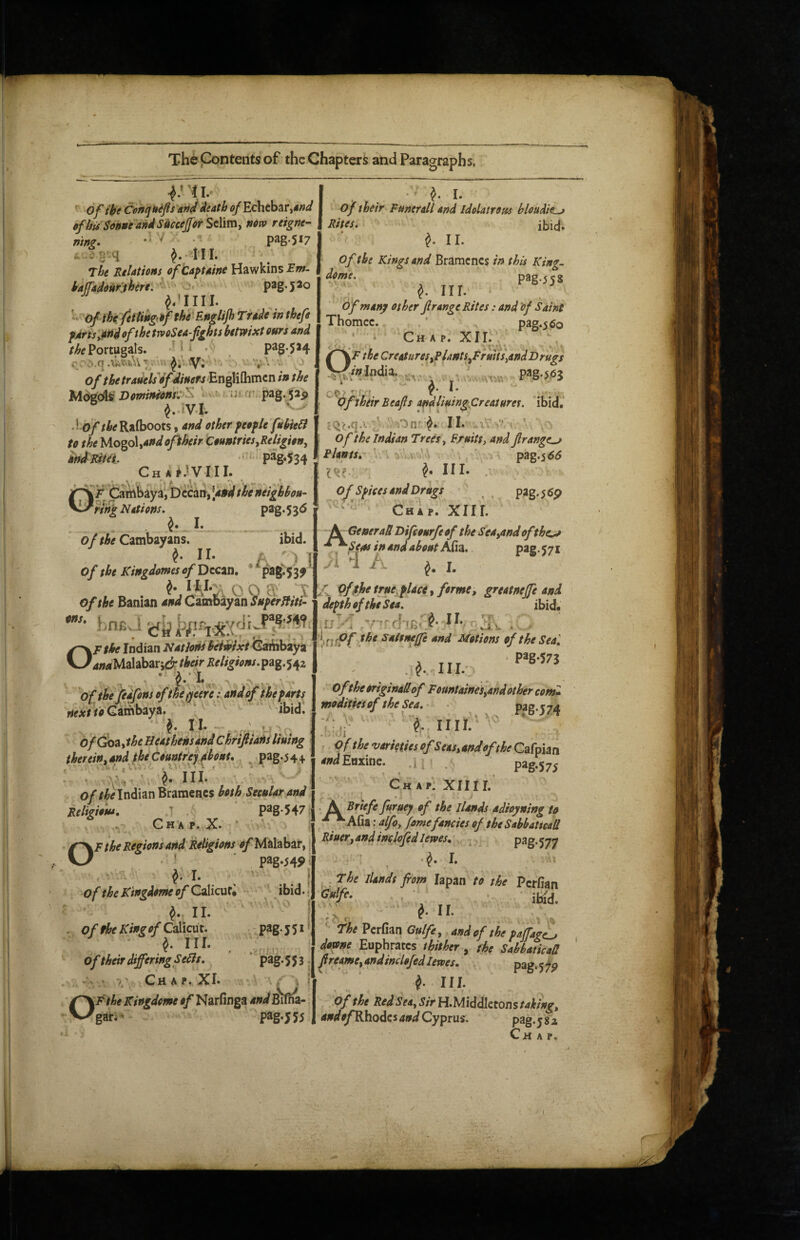 The Contents of the Chapters and Paragraphs.
§. II.
Of the Conquests and death of Echebar, and
of his Sonne and Successor Selim, now reigne-
ning. pag.517
§. III.
The Relations of Captaine Hawkins Em-
bassadour there. pag.520
§. IIII.
Of the setling of the English Trade in these
parts, and of the two Sea-fights betwixt ours and
the Portugals. pag.524
§. V.
Of the trauels of diuers Englishmen in the
Mogols Dominions. pag.529
§. VI.
Of the Rasboots, and other people subiect
to the Mogol, and of their Countries, Religion,
and Rites. pag.534
CHAP. VIII.
OF Cambaya, Deccan, and the neighbou-
ring Nations. pag.536
§. I.
Of the Cambayans. ibid.
§. II.
Of the Kingdomes of Deccan. pag.539
§. III.
Of the Banian and Cambayan Superstiti-
ons. pag.540
CHAP. IX.
OF the Indian Nations betwixt Cambaya
and Malabar; & their Religions. pag.542
§. I.
Of the seasons of the yeere: and of the parts
next to Cambaya. ibid.
§. II.
Of Goa, the Heathens and Christians liuing
therein, and the Countrey about. pag.544
§. III.
Of the Indian Bramenes both Secular and
Religious. pag.547
CHAP. X.
OF the Regions and Religions of Malabar,
pag.549
§. I.
Of the Kingdome of Calicut. ibid.
§. II.
Of the King of Calicut. pag.551
§. III.
Of their differing Sects. pag.553
CHAP. XI.
OF the Kingdome of Narsinga and Bisna-
gar. pag.555
§. I.
Of their Funerall and Idolatrous bloudie
Rites. ibid.
§. II.
Of the Kings and Bramenes in this King-
dome. pag.558
§. III.
Of many other strange Rites: and of Saint
Thomee. pag.560
CHAP. XII.
OF the Creatures, Plants, Fruits, and Drugs
in India. pag.563
§. I.
Of their Beasts and liuing Creatures. ibid.
§. II.
Of the Indian Trees, Fruits, and strange
Plants. pag.566
§. III.
Of Spices and Drugs pag.569
CHAP. XIII.
A Generall Discourse of the Sea, and of the
Seas in and about Asia. pag.571
§. I.
Of the true place, forme, greatnesse and
depth of the Sea. ibid.
§. II.
Of the Saltnesse and Motions of the Sea.
pag.573
§. III.
Of the originall of Fountaines, and other com-
modities of the Sea. pag.574
§. IIII.
Of the varieties of Seas, and of the Caspian
and Euxine. pag.575
CHAP. XIIII.
A Briefe suruey of the Ilands adioyning to
Asia: also, some fancies of the Sabbaticall
Riuer, and inclosed Iewes. pag.577
§. I.
The Ilands from Iapan to the Persian
Gulfe. ibid.
§. II.
The Persian Gulfe, and of the passage
downe Euphrates thither, the Sabbaticall
streame, and inclosed Iewes. pag.579
§. III.
Of the Red Sea, Sir H. Middletons taking,
and of Rhodes and Cyprus. pag.582
CHAP.